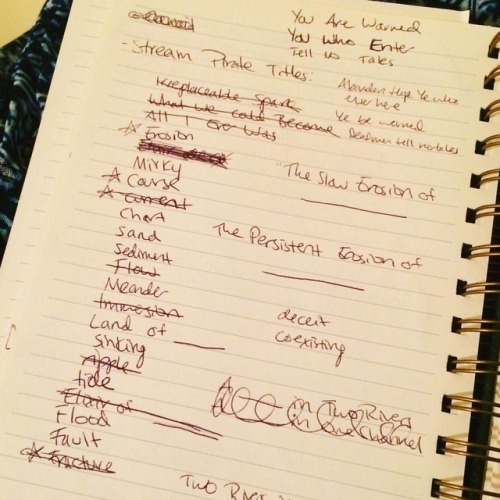 You Are Warned
You Who Enter
Tell Us Tales
- Stream Pirate Titles:
Abandon Hope Ye who
ever here
Ye be warned
Deadmen tell no tales
Irreplaceable Spark
What we could Become
All I Ever Was
☆ Erosion
Mirky
☆ Course
☆ Current
Chart
Sand
Sediment
Flow
Meander
Immersion
Land of ____
Sinking
Apple
tide
Elixir of ____
Flood
Fault
☆ Fracture
"The Slow Erosion of
____
The Persistent Erosion of
____
deceit
coexisting
in Two Rivers
in One Channel
Two River